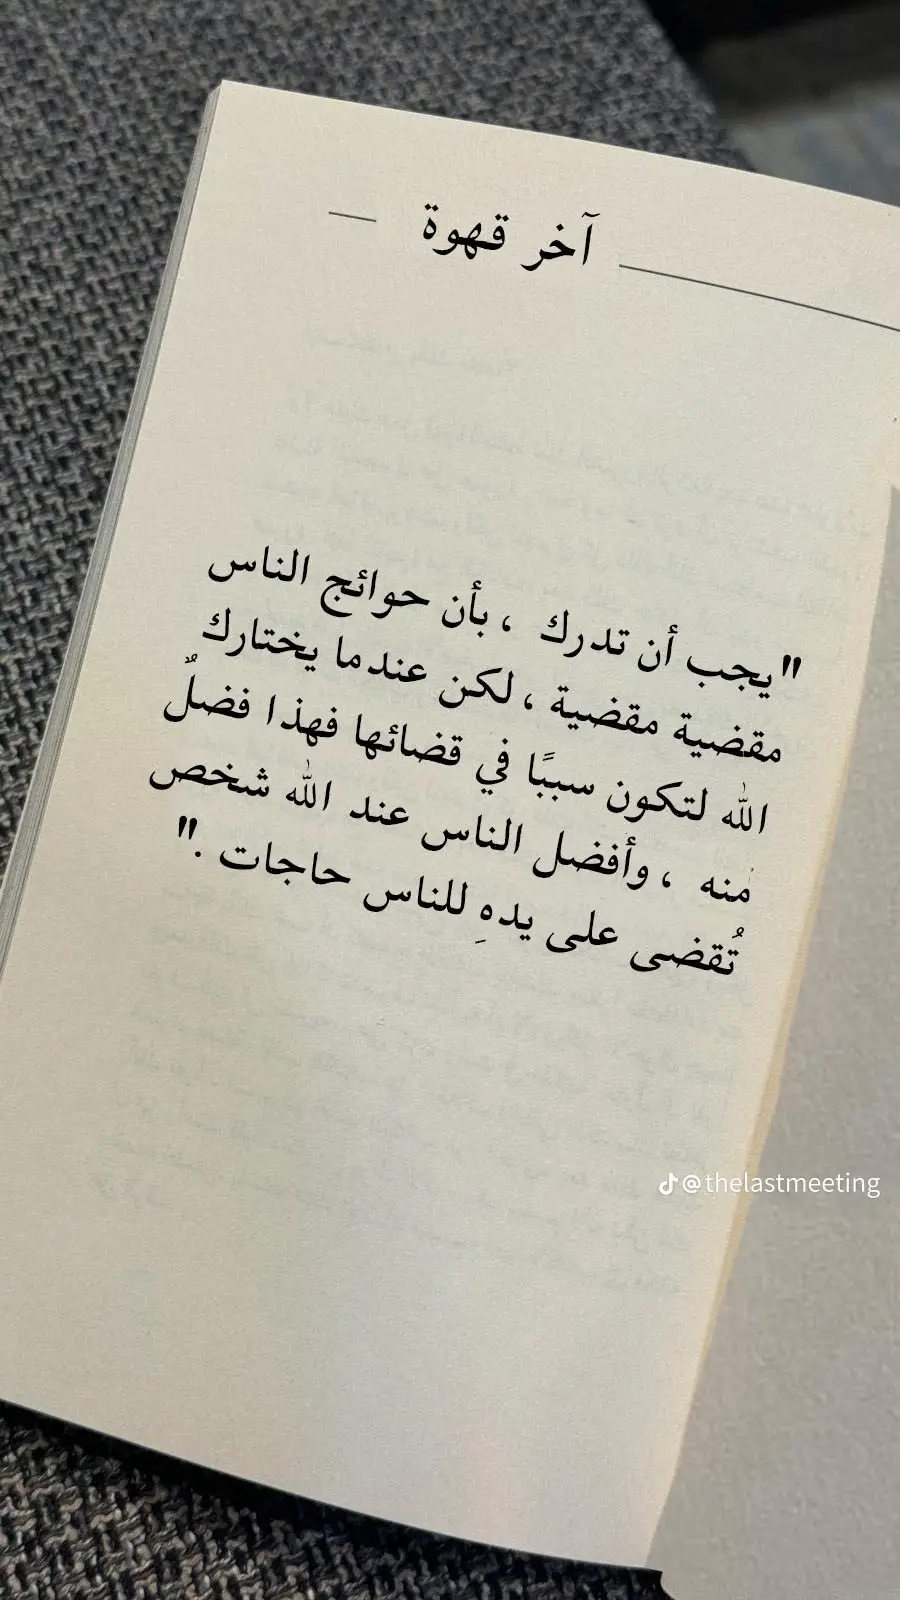 آخر قهوة
"يجب أن تدرك ، بأن حوائج الناس
مقضية مقضية ، لكن عندما يختارك
الله لتكون سببًا في قضائها فهذا فضلٌ
منه ، وأفضل الناس عند الله شخص
تُقضى على يدهِ للناس حاجات ."
@thelastmeeting